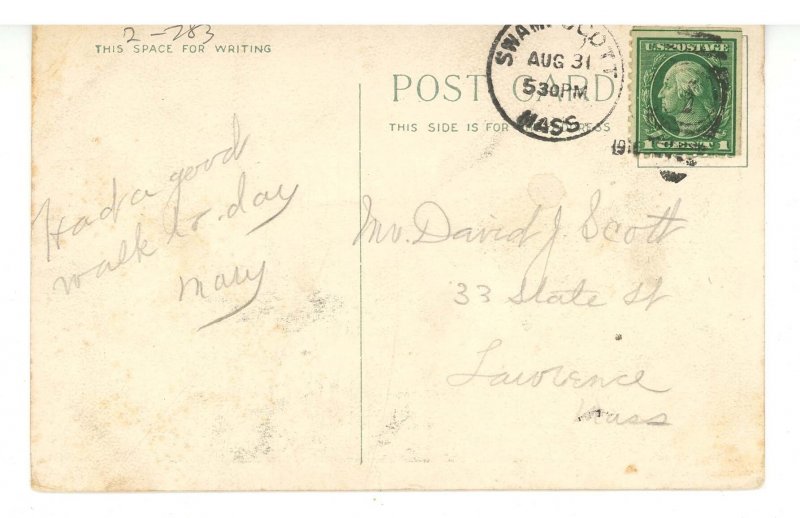 2-283
THIS SPACE FOR WRITING
Had a good
walk to-day
Mary
POST CARD
THIS SIDE IS FOR ADDRESS
SWAMPSCOTT
AUG 31
530PM
MASS
U.S. POSTAGE
1 CENT 1
Mr. David J. Scott
33 State St
Lawrence
Mass